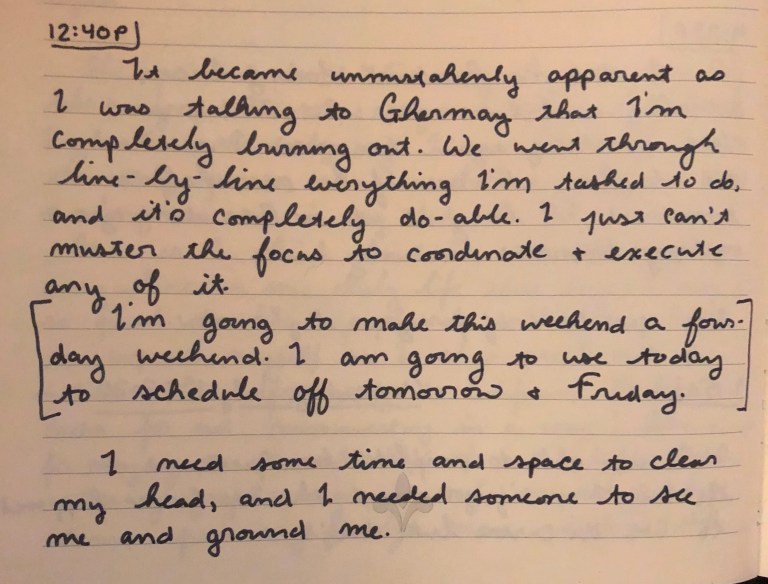 12:40P
It became unmistakenly apparent as
I was talking to Ghermay that I'm
completely burning out. We went through
line-by-line everything I'm tasked to do,
and it's completely do-able. I just can't
muster the focus to coordinate + execute
any of it.
[I'm going to make this weekend a four-
day weekend. I am going to use today
to schedule off tomorrow + Friday.]
I need some time and space to clear
my head, and I needed someone to see
me and ground me.